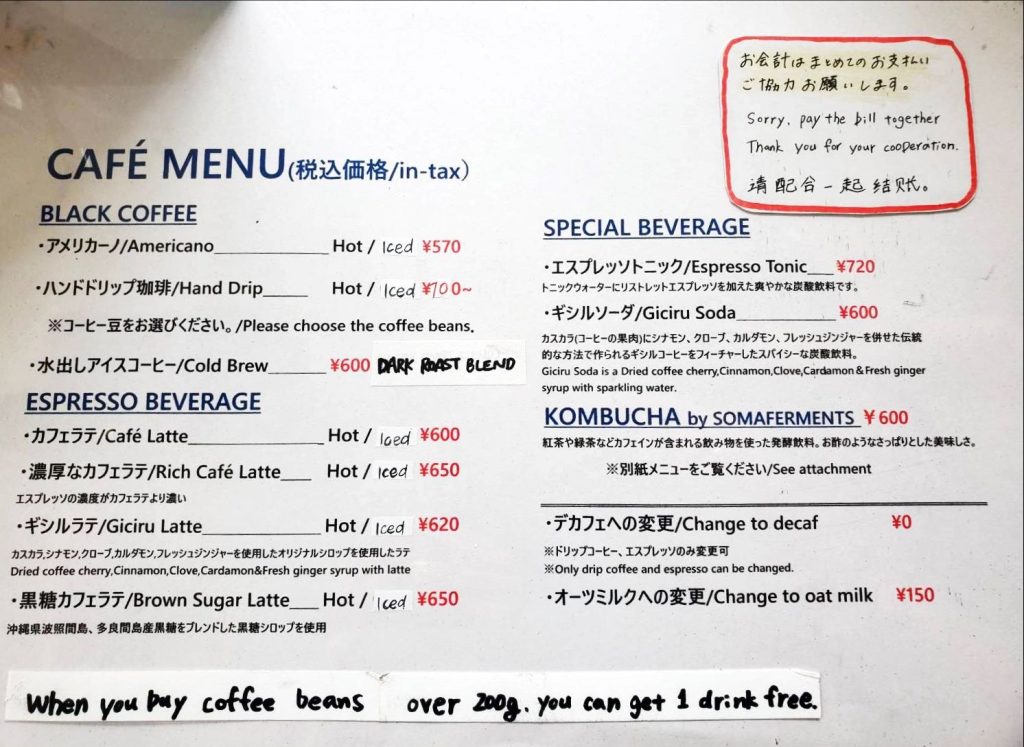 お会計はまとめてのお支払い
ご協力お願いします。
Sorry, pay the bill together
Thank you for your cooperation.
请配合一起结账。
CAFÉ MENU(税込価格/in-tax)
BLACK COFFEE
・アメリカーノ/Americano Hot / Iced ¥570
・ハンドドリップ珈琲/Hand Drip Hot / Iced ¥700~
※コーヒー豆をお選びください。/Please choose the coffee beans.
・水出しアイスコーヒー/Cold Brew ¥600 DARK ROAST BLEND
ESPRESSO BEVERAGE
・カフェラテ/Café Latte Hot / Iced ¥600
・濃厚なカフェラテ/Rich Café Latte Hot / Iced ¥650
エスプレッソの濃度がカフェラテより濃い
・ギシルラテ/Giciru Latte Hot / Iced ¥620
カスカラ,シナモン,クローブ,カルダモン,フレッシュジンジャーを使用したオリジナルシロップを使用したラテ
Dried coffee cherry,Cinnamon,Clove,Cardamon&Fresh ginger syrup with latte
・黒糖カフェラテ/Brown Sugar Latte Hot / Iced ¥650
沖縄県波照間島、多良間島産黒糖をブレンドした黒糖シロップを使用
SPECIAL BEVERAGE
・エスプレッソトニック/Espresso Tonic ¥720
トニックウォーターにリストレットエスプレッソを加えた爽やかな炭酸飲料です。
・ギシルソーダ/Giciru Soda ¥600
カスカラ(コーヒーの果肉)にシナモン、クローブ、カルダモン、フレッシュジンジャーを併せた伝統
的な方法で作られるギシルコーヒーをフィーチャーしたスパイシーな炭酸飲料。
Giciru Soda is a Dried coffee cherry,Cinnamon,Clove,Cardamon&Fresh ginger
syrup with sparkling water.
KOMBUCHA by SOMAFERMENTS ¥600
紅茶や緑茶などカフェインが含まれる飲み物を使った発酵飲料。お酢のようなさっぱりとした美味しさ。
※別紙メニューをご覧ください/See attachment
・デカフェへの変更/Change to decaf ¥0
※ドリップコーヒー、エスプレッソのみ変更可
※Only drip coffee and espresso can be changed.
・オーツミルクへの変更/Change to oat milk ¥150
When you buy coffee beans over 200g. you can get 1 drink free.